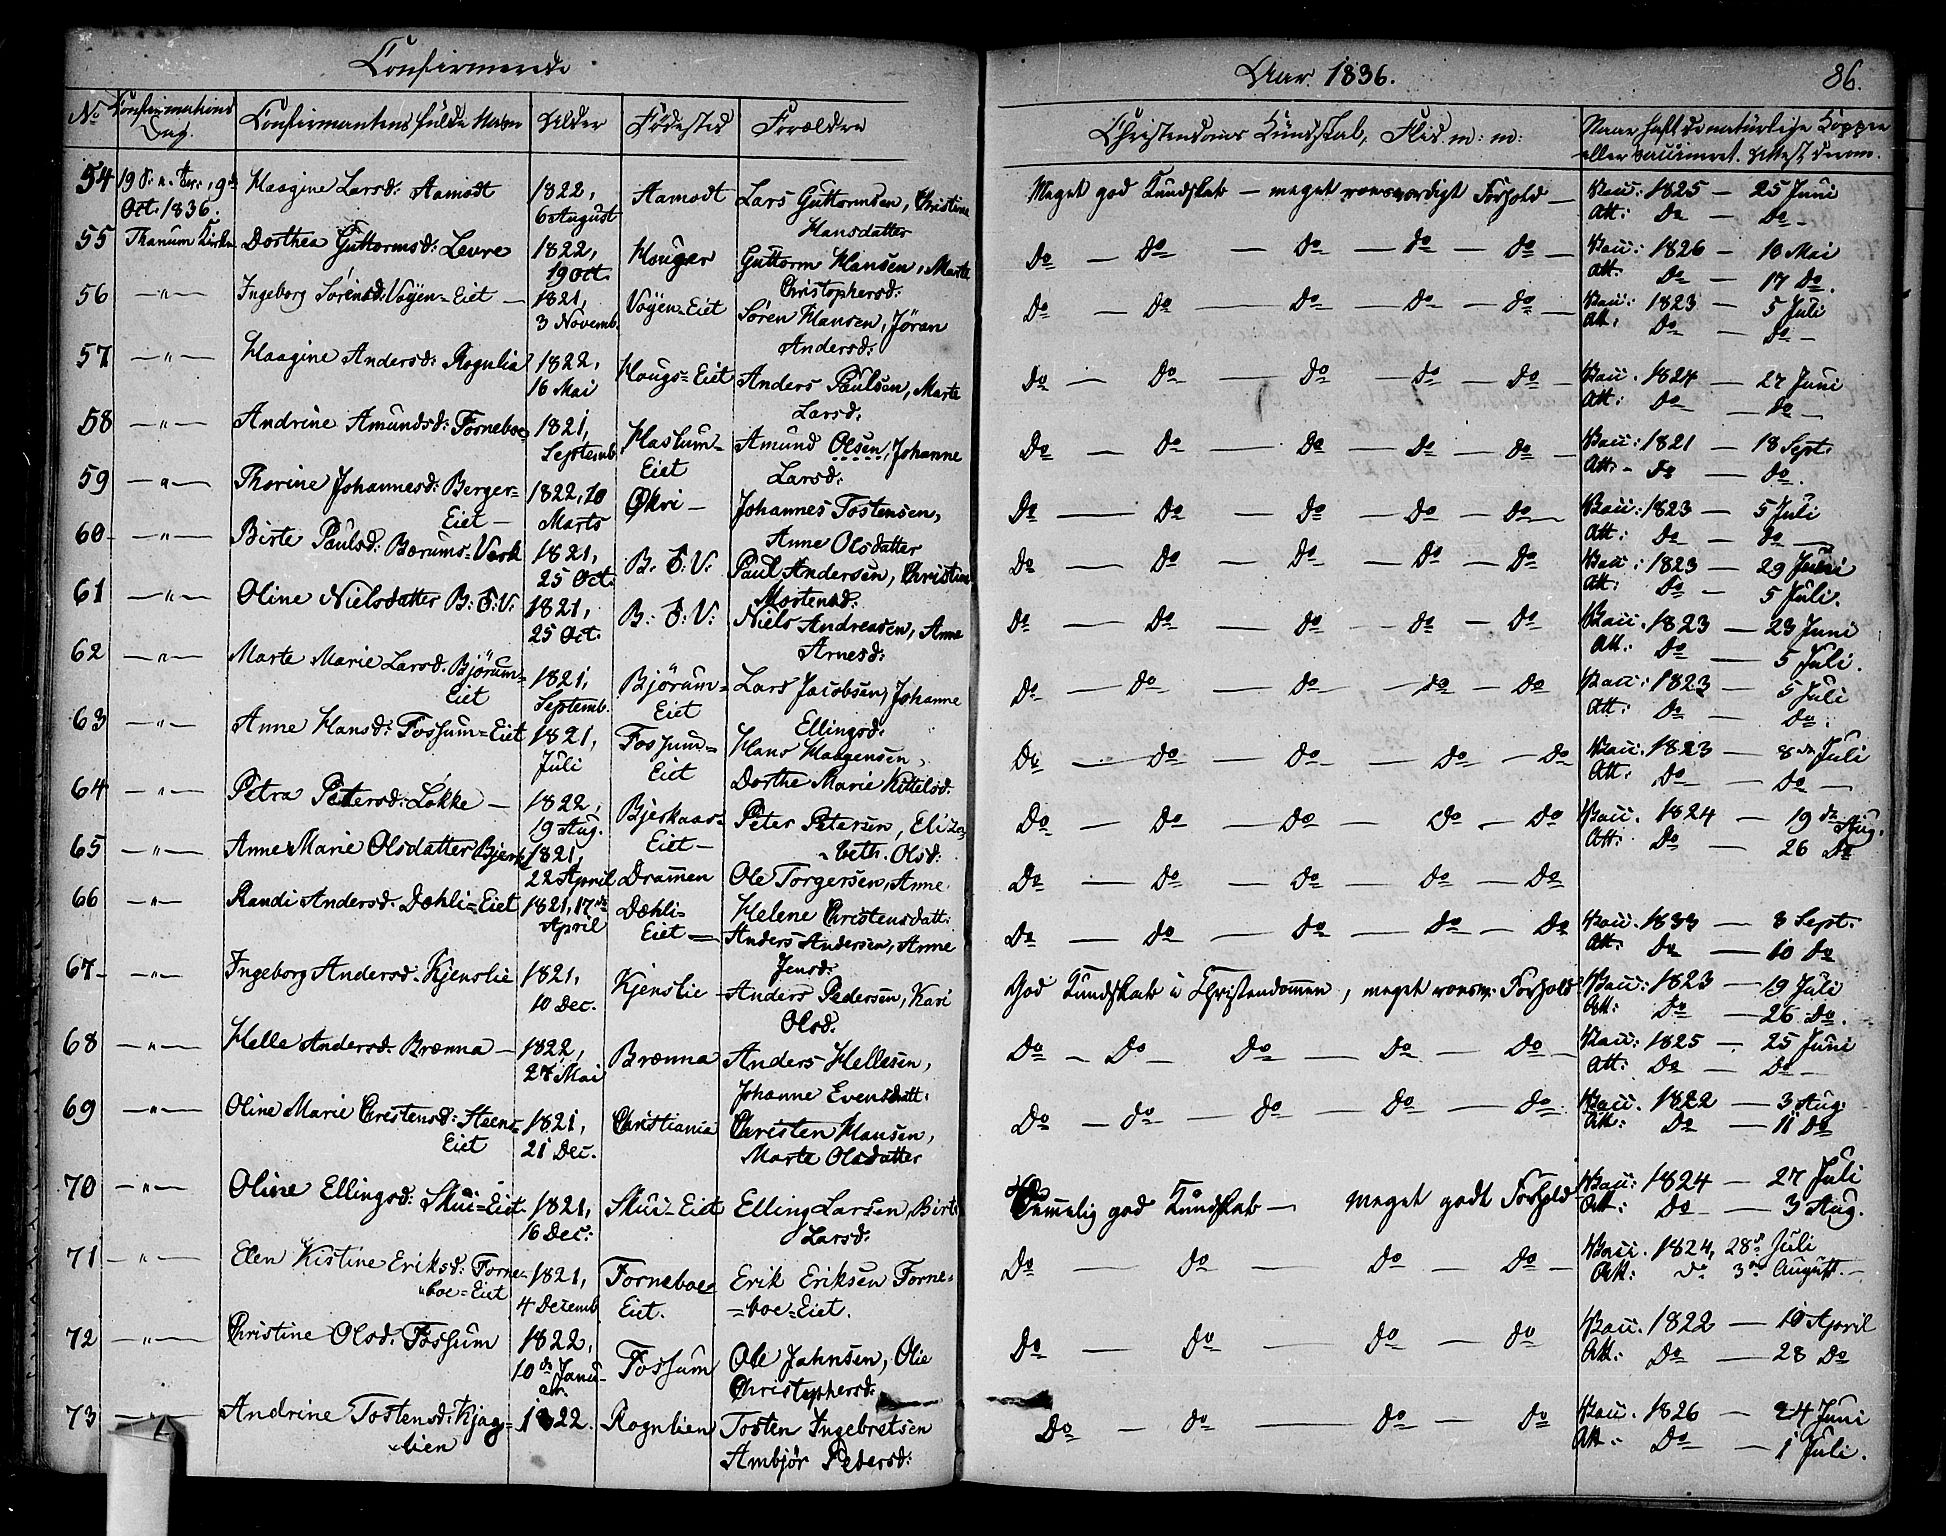 Confirmerede
Aar 1836. 86.
No Confirmations Dag. Confirmantens fulde Navn Alder Fødested Forældre Christendoms Kundskab, Flid m: m: Naar haft de naturlige Kopper
eller vaccineret. Attest derom.
54 19 S. a. Tr:, 9de Oct. 1836. Haagine Larsd: Aamodt 1822, 6 August Aamodt Lars Guttormsen, Christine Hansdatter Meget god Kundskab — meget roesværdigt Forhold — Vacc: 1825 — 25 Juni
Att: Do — Do —
55 Thanum Kirke Dorthea Guttormsd: Levre 1822, 19 Oct. Houger Guttorm Hansen, Marte Christophersd: Do — Do — Do — Do — Do — Vacc: 1826 — 10 Mai
Att. Do — 17 Do.
56 —"— Ingeborg Sörensd: Vøyen=Eiet — 1821, 3 Novemb. Vøyen=Eiet Sören Hansen, Jöran Andersd: Do — Do — Do — Do — Do — Vacc: 1823 — 5 Juli
Att. Do — Do —
57 —"— Haagine Andersd: Rognlia 1822, 16 Mai Hougs=Eiet Anders Paulsen, Marte Larsd: Do — Do — Do — Do — Do — Vacc. 1824 — 27 Juni
Att: Do — Do —
58 —"— Andrine Amundsd: Forneboe 1821, Septemb. Haslum=Eiet Amund Olsen, Johanne Larsd: Do — Do — Do — Do — Do — Vacc: 1821 — 18 Sept:
Att: — Do — Do.
59 —"— Thorine Johannesd: Berger=Eiet — 1822, 10 Marts Økri — Johannes Tostensen, Anne Olsdatter Do — Do — Do — Do — Do — Vacc: 1823 — 5 Juli
Att: Do — Do —
60 —"— Birte Paulsd: Bærums=Verk 1821, 25 Oct. B. J: V: Paul Andersen, Christine Mortensd: Do — Do — Do — Do — Do Vacc: 1823 — 29 Juni
Att: Do — 5 Juli.
61 —"— Oline Nielsdatter B: J: V: 1821, 25 Oct. B: J: V: Niels Andreasen, Anne Arnesd: Do — Do — Do — Do — Do Vacc. 1823 — 23 Juni
Att: Do — 5 Juli.
62 —"— Marte Marie Larsd: Björum=Eiet 1821, Septemb. Björum=Eiet Lars Jacobsen, Johanne Ellingsd: Do — Do — Do — Do — Do Vacc: 1823 — 5 Juli
Att: Do — Do.
63 —"— Anne Hansd: Fossum=Eiet 1821, Juli Fossum=Eiet Hans Haagensen, Dorthe Marie Kittelsd. Do — Do — Do — Do — Do Vacc: 1823 — 8de Juli
Att: Do — Do —
64 —"— Petra Pettersd: Løkke — 1822, 19 Aug. Bjerkaas=Eiet — Peter Petersen, Elizabeth. Olsd: Do — Do — Do — Do — Do Vacc. 1824 — 19de Aug.
Att: Do — 26 Do
65 —"— Anne Marie Olsdatter Bjerke 1821, 22 April Dramen Ole Torgersen, Anne Helene Christensdatt: Do — Do — Do — Do — Do
66 —"— Randi Andersd. Dæhli=Eiet 1821, 17de April Dæhli=Eiet — Anders Andersen, Anne Jensd: Do — Do — Do — Do — Do Vacc: 1833 — 3 Sept.
Att: Do — 10 Do
67 —"— Ingeborg Andersd. Kjenslie 1821, 10 Dec. Kjenslie — Anders Pedersen, Kari Olsd. God Kundskab i Christendommen, meget roesv. Forhold Vacc: 1823 — 19 Juli
Att: Do — 26 Do.
68 —"— Helle Andersd: Brænna — 1822, 27 Mai Brænna Anders Hellesen, Johanne Evensdatt: Do — Do — Do — Do — Do — Vacc: 1825 — 25 Juni
Att: Do — Do —
69 —"— Oline Marie Christensd: Steens=Eiet 1821, 21 Dec. Christiania Christen Hansen, Marte Olsdatter Do — Do — Do — Do — Do. Vacc. 1822 — 3 Aug:
Att: Do — 11 Do
70 —"— Oline Ellingsd: Skui=Eiet 1821, 16 Dec: Skui=Eiet Elling Larsen, Birte Larsd: Temelig god Kundskab — Meget godt Forhold Vacc: 1824 — 27 Juli
Att: Do — 3 Aug.
71 —"— Elen Kistine Eriksd: Forneboe=Eiet 1821, 4 Decemb Forneboe=Eiet. Erik Eriksen Forne=boe=Eiet. Do — Do — Do — Do — Vacc. 1824, 28de Juli
Att: do 3de August. —
72 —"— Christine Olsd: Fossum 1822, 10de Januar. Fossum Ole Jahnsen, Olie Christophersd: Do — Do — Do — Do Vacc. 1822 — 19 April
Att: Do — 28 Do
73 —"— Andrine Tostensd: Kjaglien 1822. Rognlien Tosten Ingebretsen Ambjør Pedersd: Do — Do — Do — Do Vacc. 1826 — 24 Juni
Att: Do — 1 Juli.